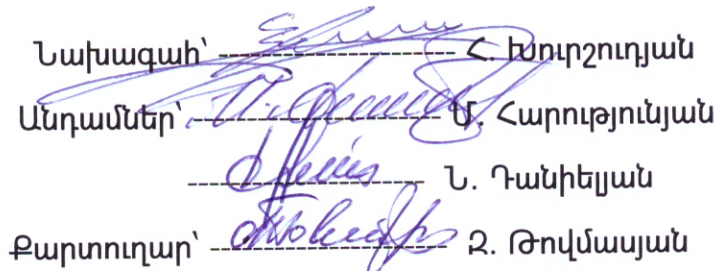 Նախագահ՝ ---------------------------- Հ. Խուրշուդյան
Անդամներ՝ ---------------------------- Մ. Հարությունյան
---------------------------- Ն. Դանիելյան
Քարտուղար՝ ---------------------------- Զ. Թովմասյան